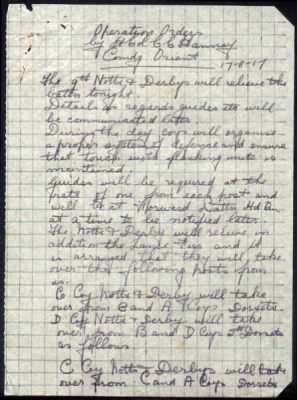 Operation Orders
by Lt Col C C Hannay
Comdg Orient
17-8-17
The 9th Notts & Derbys will relieve the
battn tonight.
Details as regards guides etc will
be communicated later.
During the day coys will organise
a proper system of defence and ensure
that touch with flanking units is
maintained.
Guides will be required at the
rate of one from each post and
will be at Forward Battn Hd Qrs
at a time to be notified later.
The Notts & Derby will relieve in
addition the and it
is arranged that they will take
over the following posts from
us.
C Coy Notts & Derby will take
over from C and A Coys Dorsets.
D Coy Notts & Derby will take
over from B and D Coys 5th Dorsets
as follows.
C Coy Notts & Derbys will take
over from C and A Coys Dorsets